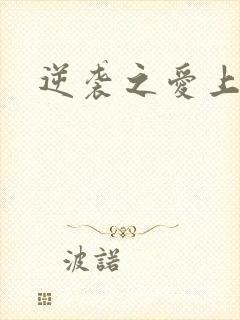 逆袭之愛上
波諾